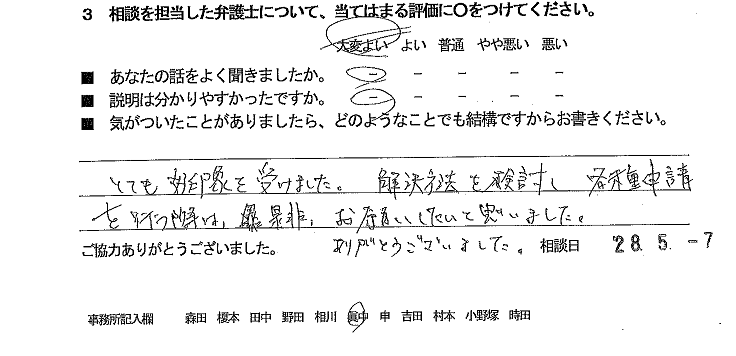 3 相談を担当した弁護士について、当てはまる評価に○をつけてください。
大変よい よい 普通 やや悪い 悪い
■ あなたの話をよく聞きましたか。 － － － － －
■ 説明は分かりやすかったですか。 － － － － －
■ 気がついたことがありましたら、どのようなことでも結構ですからお書きください。
とても好印象を受けました。解決方法を検討し 各種申請
を行う際は、是非、お願いしたいと思いました。
ご協力ありがとうございました。 ありがとうございました。 相談日 28.5.-7
事務所記入欄 森田 榎本 田中 野田 相川 眞中 申 吉田 村本 小野塚 時田